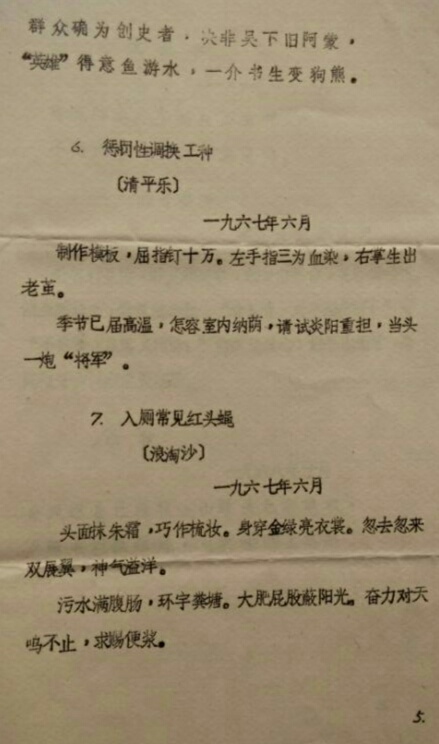 群众确为创史者，决非吴下旧阿蒙，
“英雄”得意鱼游水，一介书生变狗熊。
6. 惩罚性调换工种
〔清平乐〕
一九六七年六月
制作模板，屈指钉十万。左手指三为血染，右掌生出
老茧。
季节已届高温，怎容室内纳荫，请试炎阳重担，当头
一炮“将军”。
7. 入厕常见红头蝇
〔浪淘沙〕
一九六七年六月
头面抹朱霜，巧作梳妆。身穿金绿亮衣裳。忽去忽来
双展翼，神气溢洋。
污水满腹肠，环字粪塘。大肥屁股蔽阳光。奋力对天
呜不止，求赐便浆。
5.